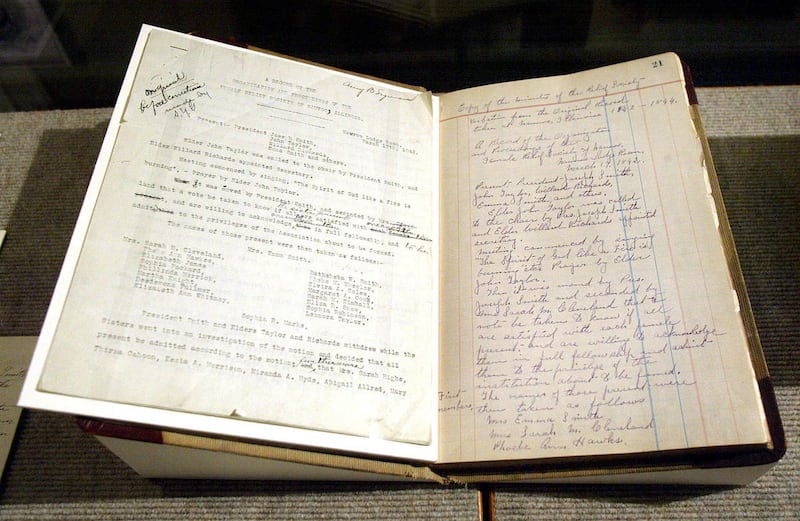 Amy B.
original
A RECORD OF THE
ORGANIZATION AND PROCEEDINGS OF THE
FEMALE RELIEF SOCIETY OF NAUVOO, ILLINOIS.
Nauvoo Lodge Room,
March 17th, 1842.
Present: President Joseph Smith,
John Taylor,
Willard Richards,
Emma Smith and others.
Elder John Taylor was called to the chair by President Smith, and
Elder Willard Richards appointed Secretary.
Meeting commenced by singing, "The Spirit of God like a fire is
burning", - Prayer by Elder John Taylor.
It was moved by President Smith, and seconded by Mrs.
land that a vote be taken to know if all are satisfied with
and are willing to acknowledge in full fellowship, and
to the privileges of the Association about to be formed.
The names of those present were then taken as follows:
Mrs. Emma Smith.
Mrs. Sarah M. Cleveland,
Phebe Ann Hawkes,
Elizabeth Jones
Sophia Packard,
Phillinda Merrick,
Martha Knight,
Desdemona Fulmer,
Elizabeth Ann Whitney.
Bathsheba W. Smith,
Phebe M. Wheeler,
Elvira A. Coles,
Margaret A. Cook,
Sarah M. Kimball,
Eliza R. Snow,
Sophia Robinson,
Leonora Taylor.
Sophia R. Marks.
President Smith and Elders Taylor and Richards withdrew while the
Sisters went into an investigation of the motion and decided that all
present be admitted according to the motion, and that Mrs. Sarah Higbe,
Thirza Cahoon, Kezia A. Morrison, Miranda A. Hyde, Abigail Allred, Mary
21
Copy of the Minutes of the Relief Society
Verbatim from the Original Records
taken at Nauvoo, Illinois 1842 - 1844.
A Record of the Organization
and Proceedings of the
Female Relief Society of Nauvoo
Nauvoo Lodge Room,
March 17, 1842.
Present President Joseph Smith,
John Taylor, Willard Richards,
Emma Smith, and others.
Elder John Taylor was called
to the chair by Pres. Joseph Smith
and Elder Willard Richards appointed
secretary.
Meeting commenced by singing
"The Spirit of God like a Fire is
burning" etc. Prayer by Elder
John Taylor.
It was moved by Pres.
Joseph Smith and seconded by
Mrs Sarah M. Cleveland that a
vote be taken to know if all
are satisfied with each female
present- and are willing to acknowledge
them in full fellowship and admit-
them to the privilege of the
institution about to be formed.
The names of those present were
then taken as follows
First
members,
Mrs Emma Smith
Mrs Sarah M. Cleveland
Phoebe Ann Hawks.